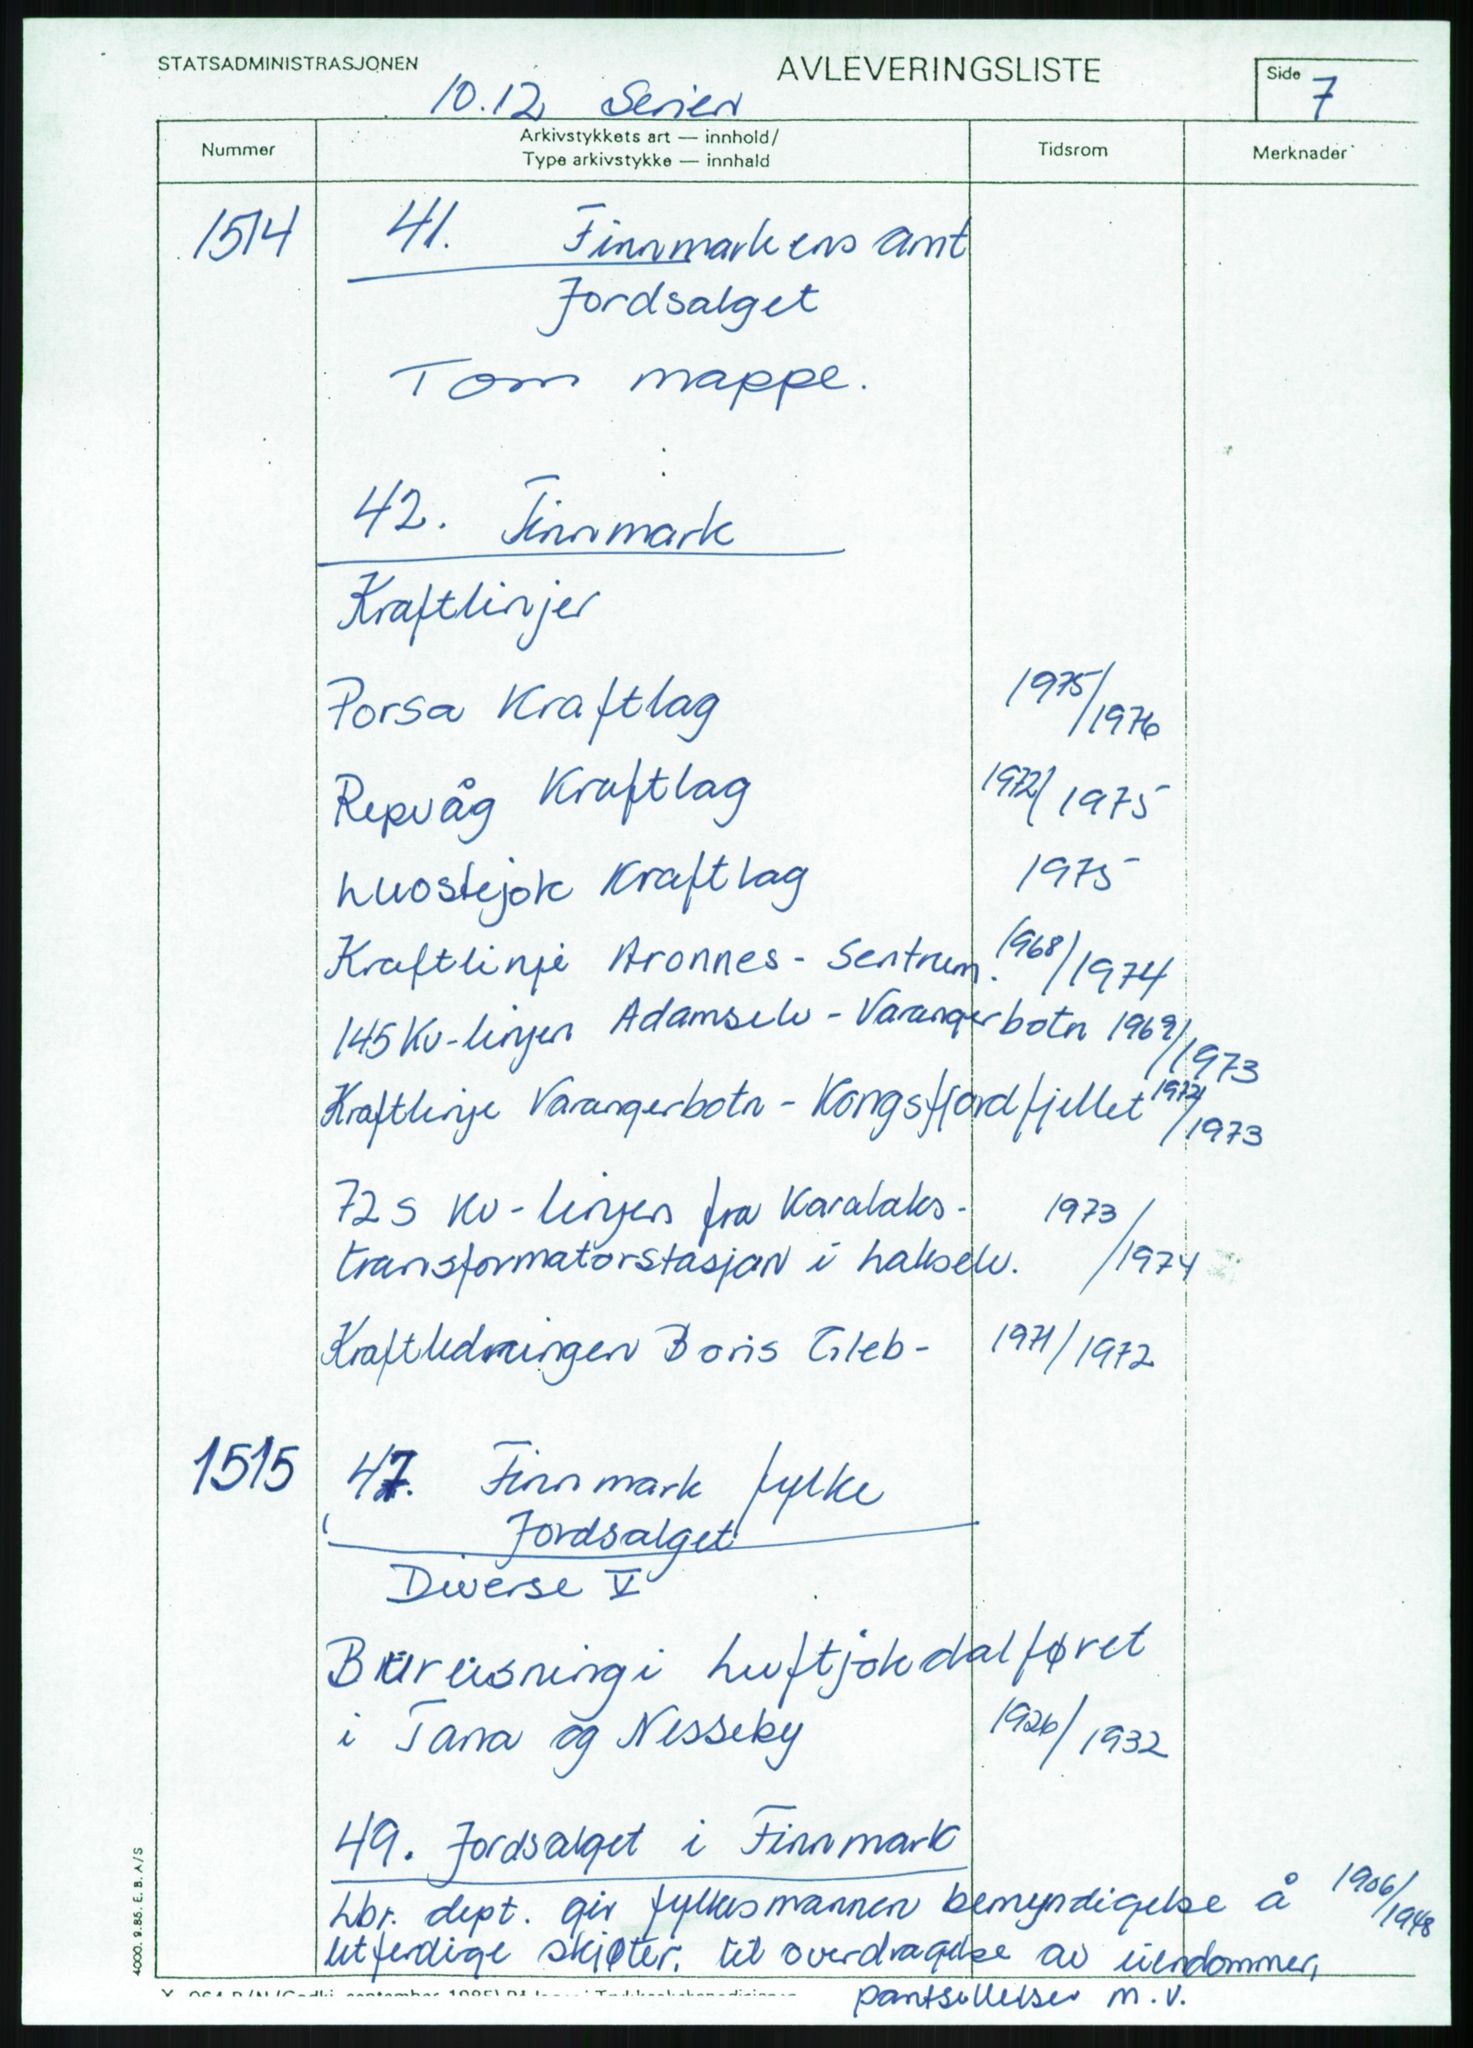 STATSADMINISTRASJONEN
AVLEVERINGSLISTE
Side 7
10.12 Serien
Nummer
Arkivstykkets art — innhold/
Type arkivstykke — innhald
Tidsrom
Merknader
1514 41. Finnmarkens amt
Jordsalget
Tom mappe.
42. Finnmark
Kraftlinjer
Porsa Kraftlag 1975/1976
Repvåg Kraftlag 1972/1975
Luostejok Kraftlag 1975
Kraftlinje Aronnes - Sentrum. 1968/1974
145 Kv-linjen Adamselv - Varangerbotn 1969/1973
Kraftlinje Varangerbotn - Kongsfjordfjellet 1972/1973
72 S Kv-linjen fra Karalaks-
transformatorstasjon i Lakselv. 1973/1974
Kraftledningen Boris Gleb- 1971/1972
1515 47. Finnmark fylke
Jordsalget
Diverse V
Bureisning i Luftjokdalføret
i Tana og Nesseby 1926/1932
49. Jordsalget i Finnmark
Lbr. dept. gir fylkesmannen bemyndigelse å 1906/1948
utferdige skjøter. til overdragelse av eiendommer,
pantsettelser m.v.
4000. 9.85. E. B. A/S